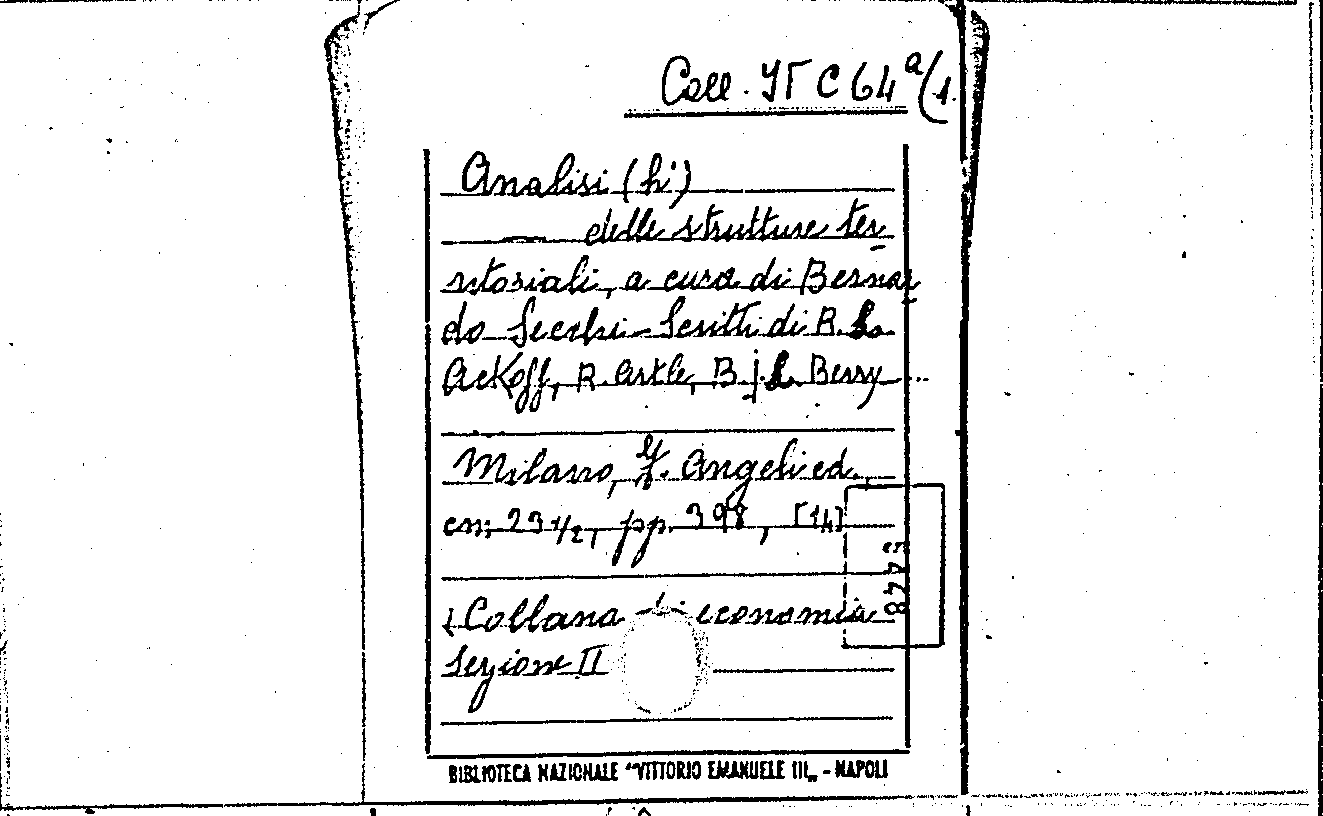 Coll. YΓ C 64 a/1.
Analisi (h')
—— delle strutture ter
ritoriali, a cura di Bernar
do Secchi - Scritti di R. L.
Ackoff, R. Artle, B. J. L. Berry ...
Milano, F. Angeli ed.,
cm. 23 1/2, pp. 398, [14]
5448
(Collana di economia
Sezione II
BIBLIOTECA NAZIONALE "VITTORIO EMANUELE III„ - NAPOLI